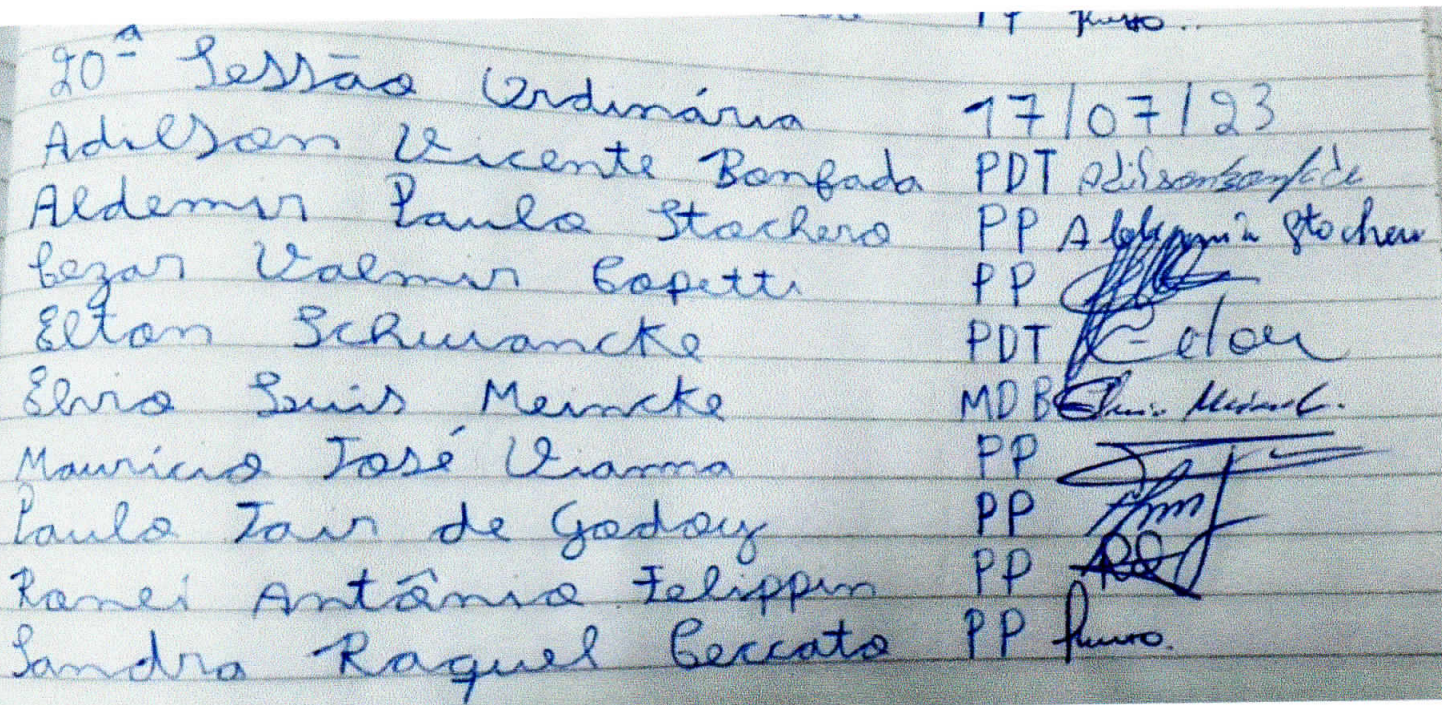 PP
20ª Sessão Ordinária 17/07/23
Adilson Vicente Bonfada PDT Adilson Bonfada
Aldemir Paulo Stochero PP Aldemir Stochero
Cezar Valmir Copetti PP
Elton Schwancke PDT
Elvio Luis Meincke MDB Elvio Meincke
Maurício José Vianna PP
Paulo Jair de Godoy PP
Ranei Antônio Felippin PP
Sandra Raquel Ceccato PP